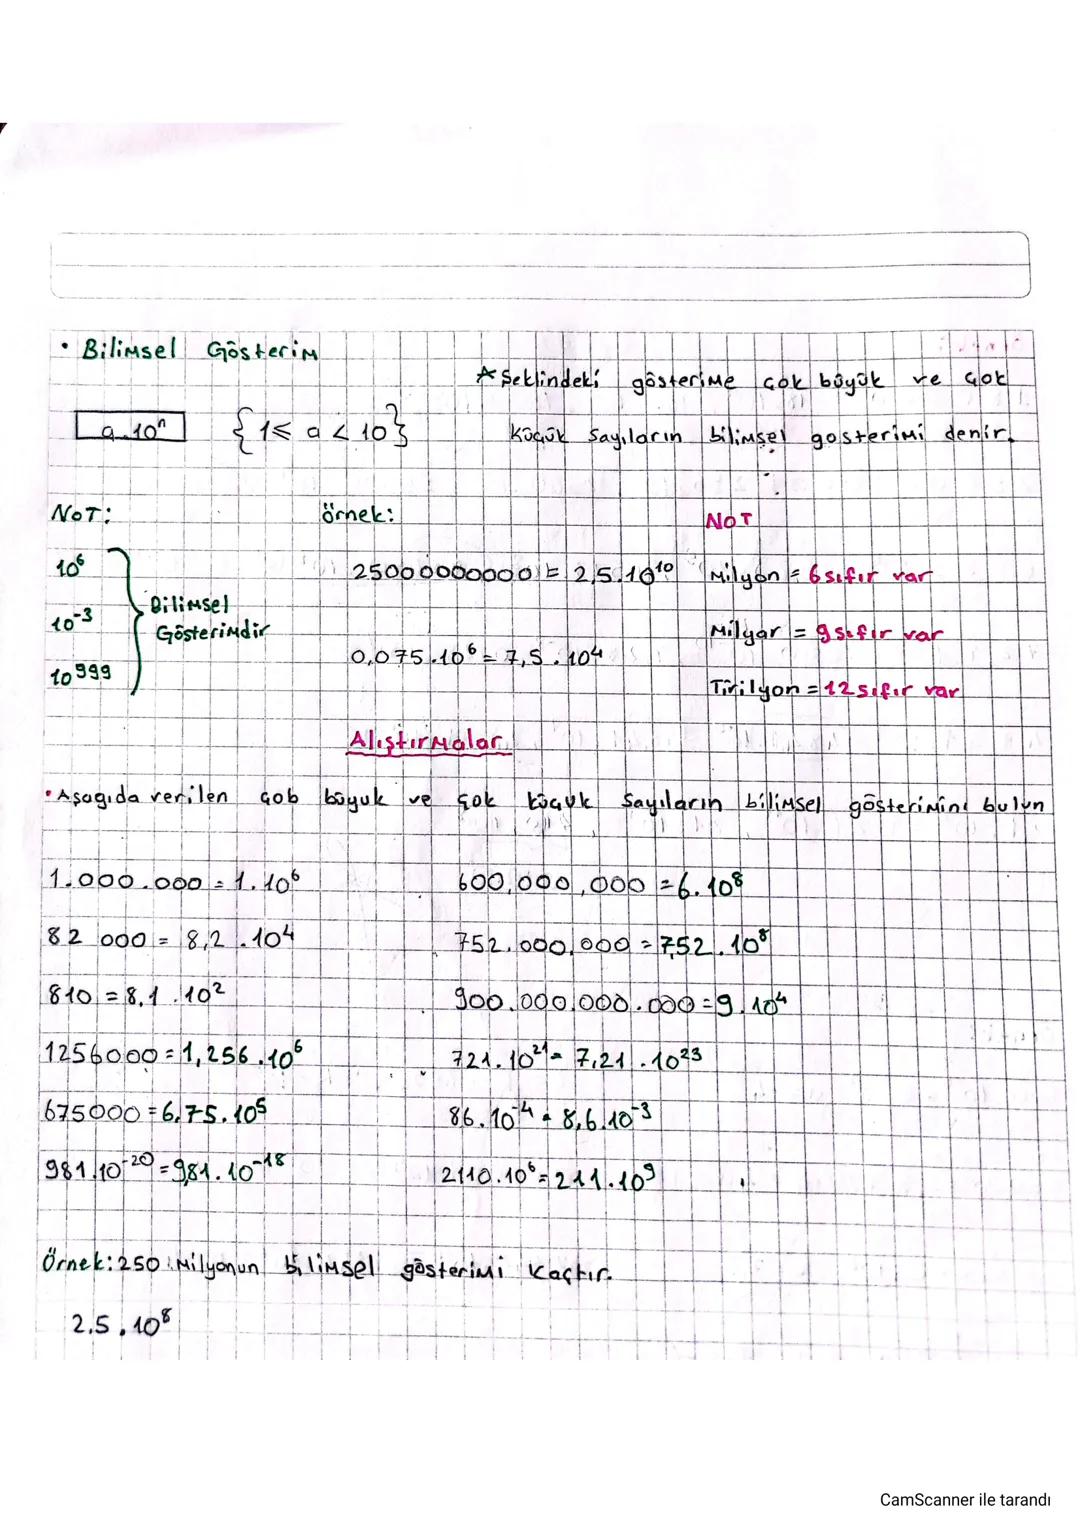 • Bilimsel Gösterim
* Şeklindeki gösterime çok büyük ve çok
küçük sayıların bilimsel gosterimi denir.
a.10ⁿ {1≤ a < 10}
NOT:
10⁶
10⁻³
10⁹⁹⁹
Bilimsel
Gösterimdir
örnek:
25000000000 = 2,5.10¹⁰
0,075.10⁶ = 7,5.10⁴
NOT
Milyon = 6 sıfır var
Milyar = 9 sıfır var
Tirilyon = 12 sıfır var
Alıştırmalar
• Aşagıda verilen çob büyuk ve çok küçük sayıların bilimsel gösterimini bulun
1.000.000 = 1.10⁶
82 000 = 8,2.10⁴
810 = 8,1.10²
1256000 = 1,256.10⁶
675000 = 6,75.10⁵
981.10⁻²⁰ = 9,81.10⁻¹⁸
600,000,000 = 6.10⁸
752.000.000 = 7,52.10⁸
900.000.000.000 = 9.10⁴
721.10²¹ = 7,21.10²³
86.10⁻⁴ = 8,6.10⁻³
2110.10⁶ = 211.10⁹
Örnek: 250 Milyonun bilimsel gösterimi kaçtır.
2,5.10⁸
CamScanner ile tarandı